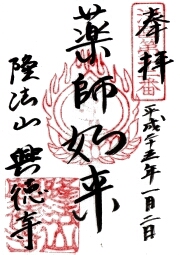 奉拝
平成二十五年一月二日
薬師如来
隆法山 興徳寺